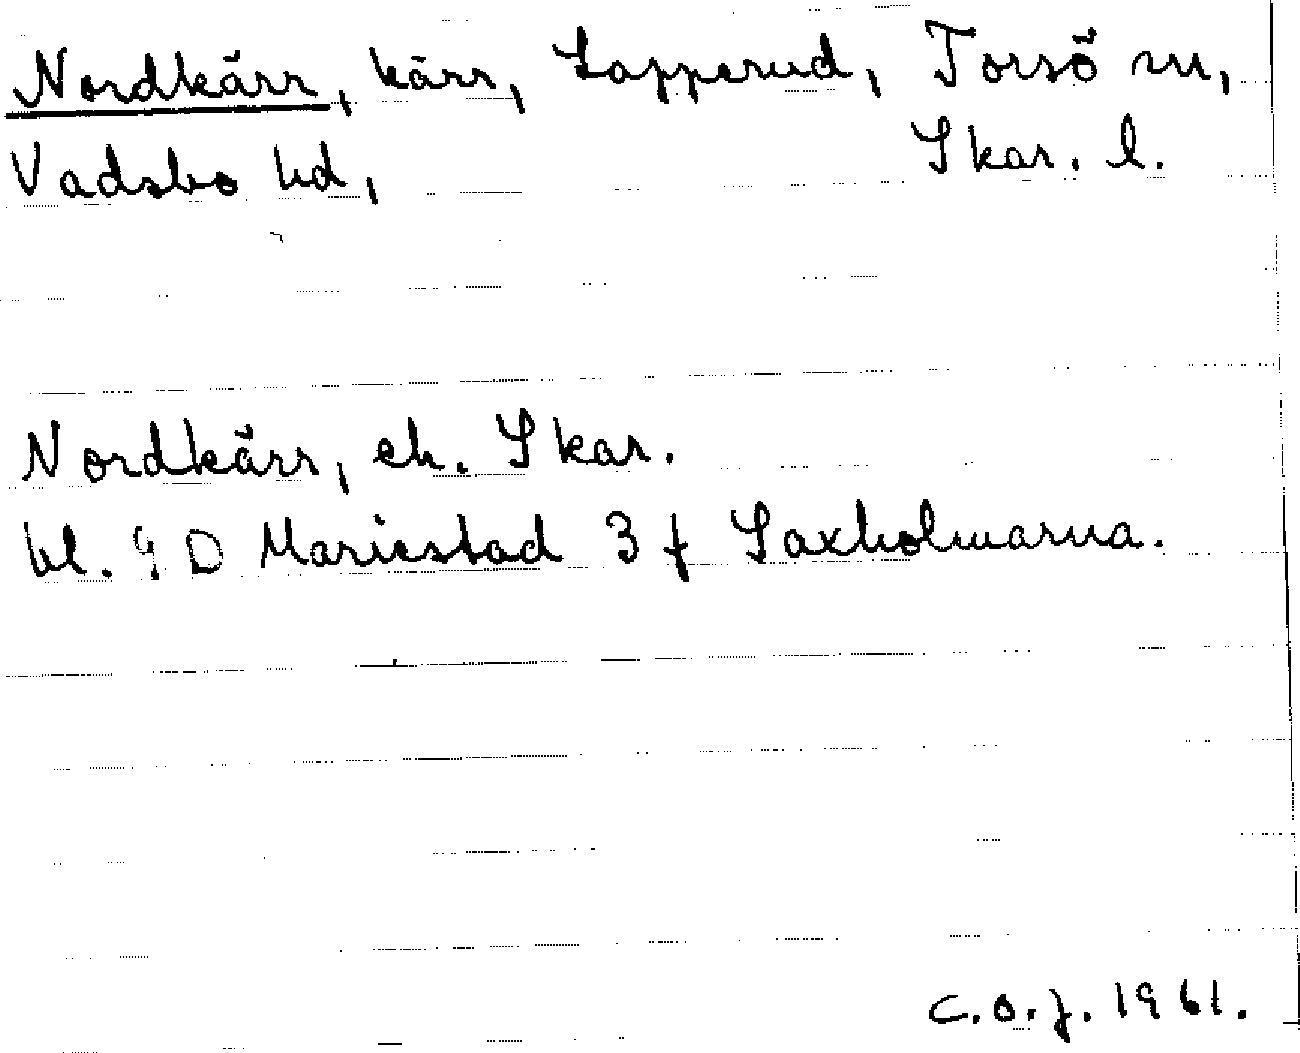 Nordkärr, kärr, Lapperud, Torsö sn,
Vadsbo hd, Skar. l.
Nordkärr, ek. Skar.
bl. 9 D Mariestad 3 f Laxholmarna.
C.O.J. 1961.